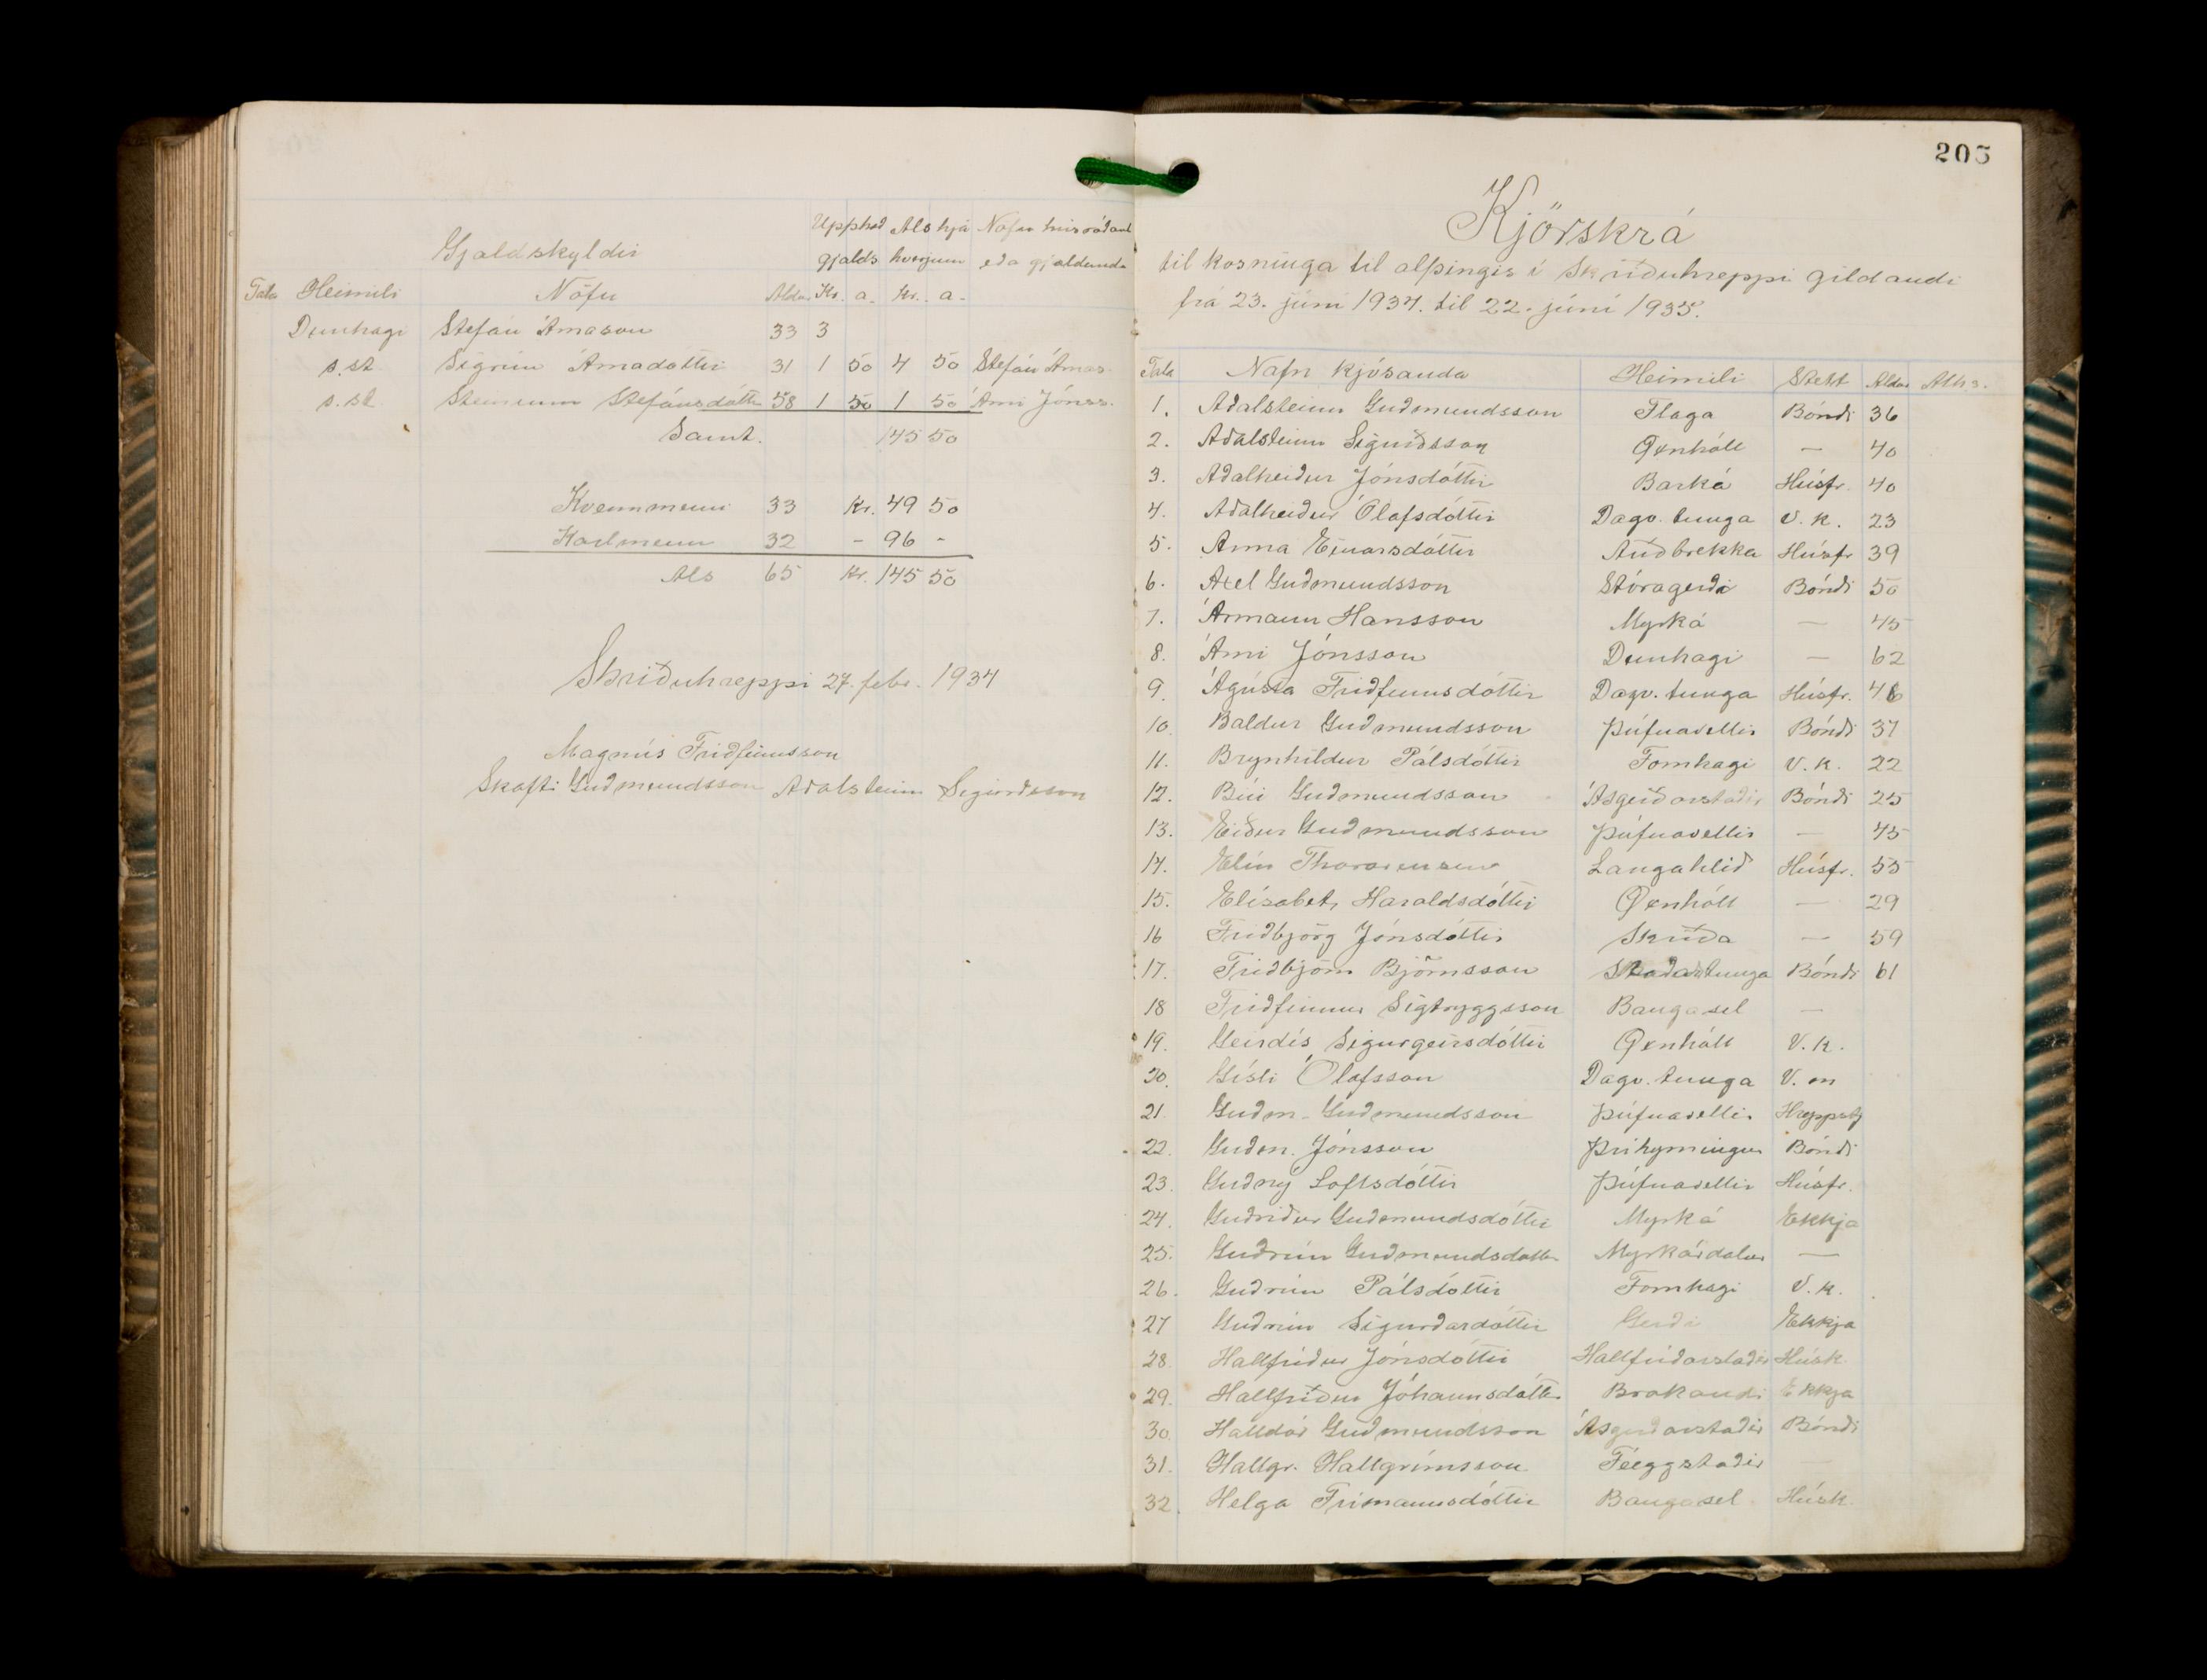 Gjaldskyldir
Upphæð gjalds
Als hjá hverjum
Nöfn húsráðand eða gjaldenda
Tala Heimili Nöfn Aldur Kr. a. Kr. a.
Dunhagi Stefán Árnason 33 3
s.st. Sigrún Árnadóttir 31 1 50 4 50 Stefán Árnas.
s.st. Steinunn Stefánsdóttir 58 1 50 1 50 Árni Jónss.
Samt. 145 50
Kvennmenn 33 Kr. 49 50
Karlmenn 32 - 96 -
Als 65 Kr. 145 50
Skriðuhreppi 27. febr. 1934
Magnús Friðfinnsson
Skafti Guðmundsson Aðalsteinn Sigurðsson
205
Kjörskrá
til kosninga til alþingis í Skriðuhreppi gildandi
frá 23. júní 1934. til 22. júní 1935.
Tala Nafn kjósanda Heimili Stétt Aldur Aths.
1. Aðalsteinn Guðmundsson Flaga Bóndi 36
2. Aðalsteinn Sigurðsson Öxnhóll — 40
3. Aðalheiður Jónsdóttir Barká Húsfr. 40
4. Aðalheiður Ólafsdóttir Dagv.tunga V.k. 23
5. Anna Einarsdóttir Auðbrekka Húsfr 39
6. Axel Guðmundsson Stóragerði Bóndi 50
7. Ármann Hansson Myrká — 45
8. Árni Jónsson Dunhagi — 62
9. Ágústa Friðfinnsdóttir Dagv.tunga Húsfr. 46
10. Baldur Guðmundsson Þúfnavellir Bóndi 37
11. Brynhildur Pálsdóttir Fornhagi V.k. 22
12. Búi Guðmundsson Ásgerðarstaðir Bóndi 25
13. Eiður Guðmundsson Þúfnavellir — 45
14. Elín Thorarensen Langahlíð Húsfr. 55
15. Elísabet Haraldsdóttir Öxnhóll — 29
16 Friðbjörg Jónsdóttir Skriða — 59
17. Friðbjörn Björnsson Staðartunga Bóndi 61
18 Friðfinnur Sigtryggsson Baugasel —
19. Geirdís Sigurgeirsdóttir Öxnhóll V.k.
20. Gísli Ólafsson Dagv.tunga V.m
21 Guðm. Guðmundsson Þúfnavellir Hreppstj
22. Guðm. Jónsson Þríhyrningur Bóndi
23. Guðný Loftsdóttir Þúfnavellir Húsfr.
24. Guðríður Guðmundsdóttir Myrká Ekkja
25. Guðrún Guðmundsdóttir Myrkárdalur —
26. Guðrún Pálsdóttir Fornhagi V.k.
27 Guðrún Sigurðardóttir Gerði Ekkja
28. Hallfríður Jónsdóttir Hallfríðarstaðir Húsk.
29. Hallfríður Jóhannsdóttir Brakandi Ekkja
30. Halldór Guðmundsson Ásgerðarstaðir Bóndi
31. Hallgr. Hallgrímsson Féeggstaðir
32. Helga Frímannsdóttir Baugasel Húsk.